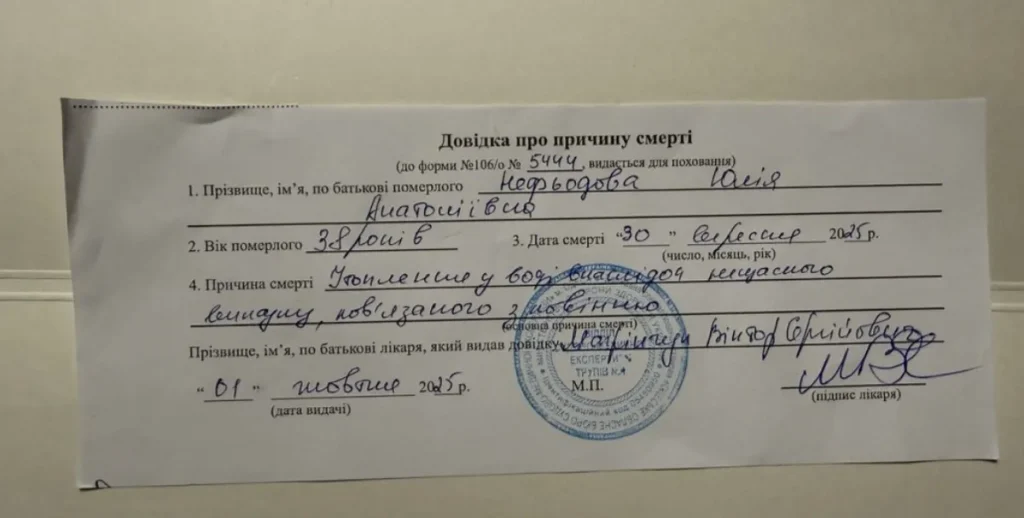 Довідка про причину смерті
(до форми №106/о № 5444, видається для поховання)
1. Прізвище, ім’я, по батькові померлого Нефьодова Юлія
Анатоліївна
2. Вік померлого 38 років 3. Дата смерті “30” вересня 2025р.
(число, місяць, рік)
4. Причина смерті Утоплення у воді внаслідок нещасного
випадку, пов'язаного з повінню
(основна причина смерті)
Прізвище, ім’я, по батькові лікаря, який видав довідку Віктор Сергійович
ЕКСПЕРТИЗИ
ТРУПІВ №1
М.П.
“01” жовтня 2025р.
(дата видачі)
(підпис лікаря)